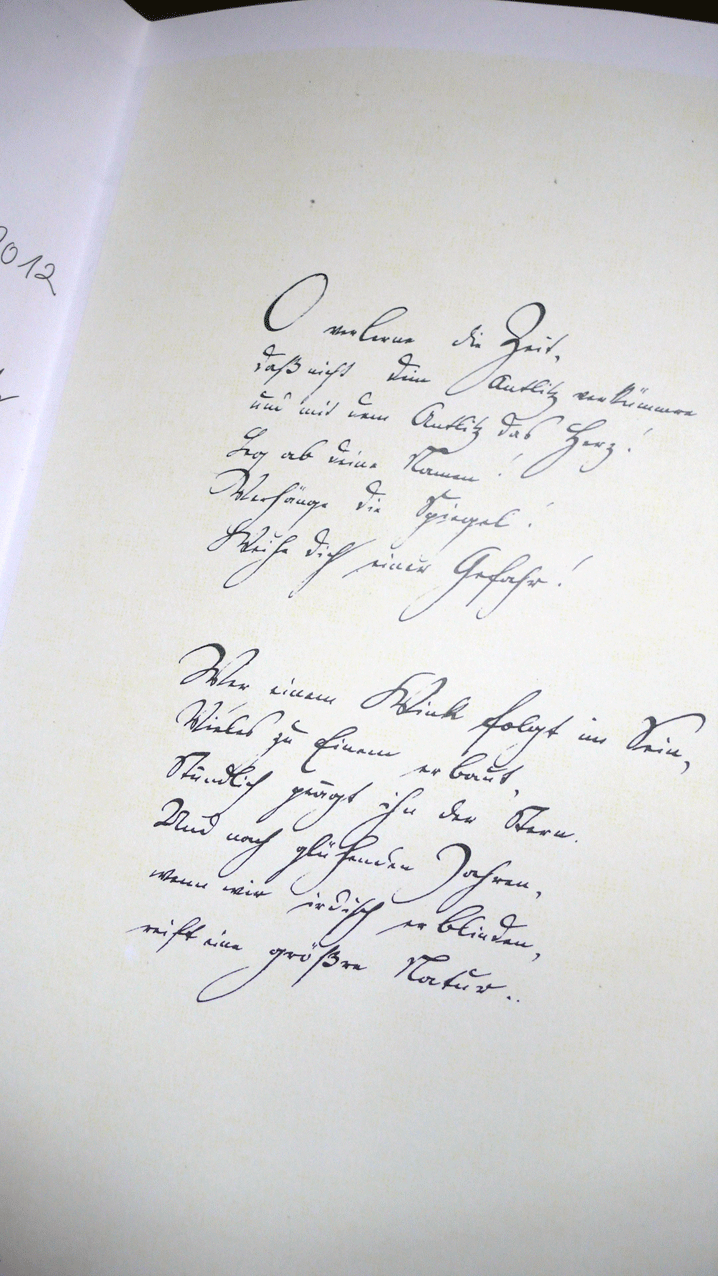 2012
O verlerne die Zeit,
daß nicht dein Antlitz verkümmre
und mit dem Antlitz das Herz!
Leg ab deine Namen!
Verhänge die Spiegel!
Weihe dich einer Gefahr!
Wer einem Wink folgt im Sein,
Vieles zu Einem erbaut,
Stündlich prägt ihn der Stern.
Und nach glühenden Jahren,
wenn wir irdisch erblinden,
reift eine größre Natur..